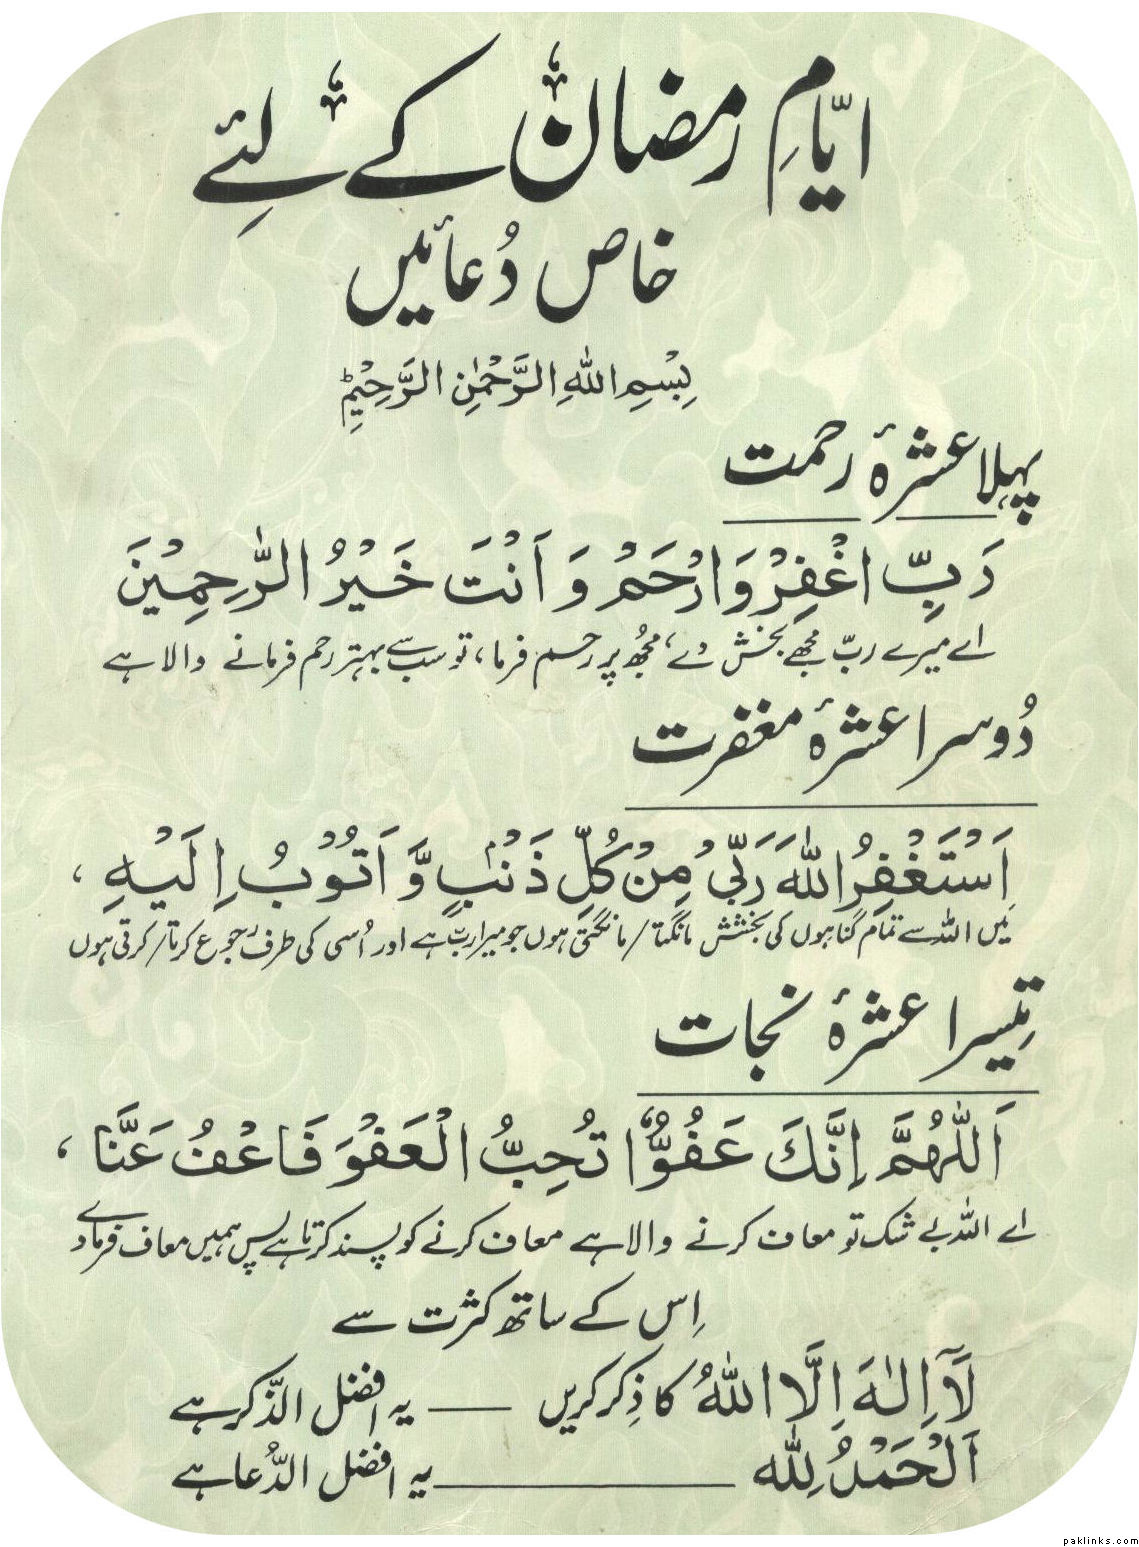 ایّامِ رمضان کے لئے
خاص دُعائیں
بِسْمِ اللهِ الرَّحْمٰنِ الرَّحِيْمِ ط
پہلا عشرۂ رحمت
رَبِّ اغْفِرْ وَارْحَمْ وَ اَنْتَ خَيْرُ الرّٰحِمِيْنَ
اے میرے ربّ مجھے بخش دے، مجُھ پر رحم فرما، تو سب سے بہتر رحم فرمانے والا ہے
دُوسرا عشرۂ مغفرت
اَسْتَغْفِرُ اللهَ رَبِّىْ مِنْ كُلِّ ذَنْۢبٍ وَّ اَتُوْبُ اِلَيْهِ ،
میں اللہ سے تمام گناہوں کی بخشش مانگتا/مانگتی ہوں جو میرا ربّ ہے اور اُسی کی طرف رجوع کرتا/کرتی ہوں
تیسرا عشرۂ نجات
اَللّٰهُمَّ اِنَّكَ عَفُوٌّا تُحِبُّ الْعَفْوَ فَاعْفُ عَنَّا ،
اے اللہ بے شک تو معاف کرنے والا ہے معاف کرنے کو پسند کرتا ہے پس ہمیں معاف فرما دے
اِس کے ساتھ کثرت سے
لَآ اِلٰهَ اِلَّا اللهُ کا ذِکر کریں — یہ افضل الذّکر ہے
اَلْحَمْدُ لِلّٰه — یہ افضل الدُّعا ہے
paklinks.com